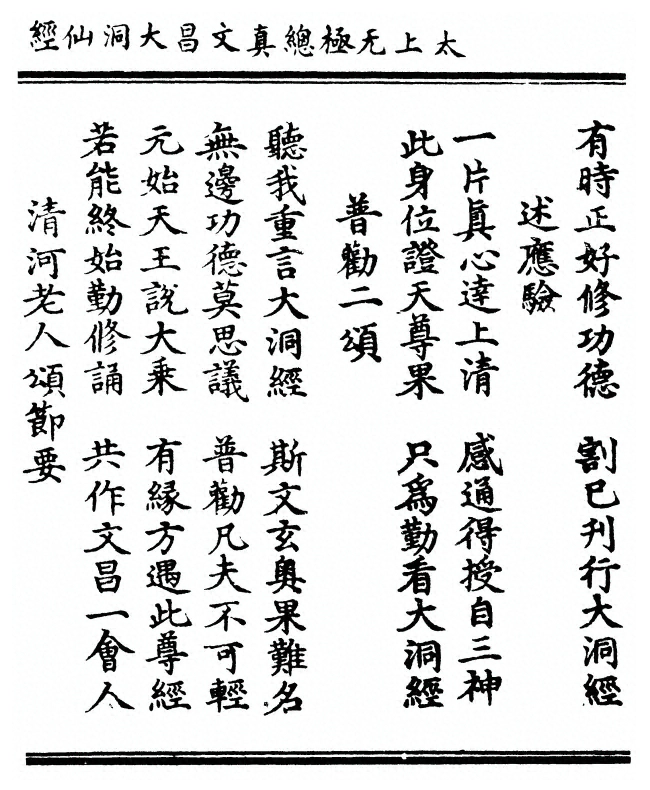 太上无極總真文昌大洞仙經
有時正好修功德 割己刋行大洞經
述應驗
一片眞心達上清 感通得授自三神
此身位證天尊果 只爲勤看大洞經
普勸二頌
聽我重言大洞經 斯文玄奧果難名
無邊功德莫思議 普勸凡夫不可輕
元始天王說大乘 有緣方遇此尊經
若能終始勤修誦 共作文昌一會人
清河老人頌節要